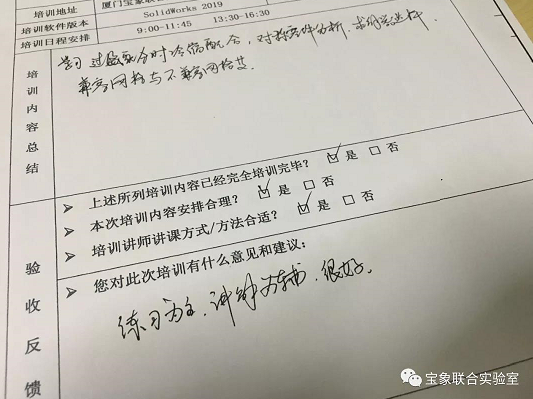 培训地址 厦门宝象联合
培训软件版本 SolidWorks 2019
培训日程安排 9:00-11:45 13:30-16:30
培训内容总结
学习过盈配合时冷缩配合，对称零件分析，求解器选择
兼容网格与不兼容网格
上述所列培训内容已经完全培训完毕？ ☑ 是 □ 否
本次培训内容安排合理？ ☑ 是 □ 否
培训讲师讲课方式/方法合适？ ☑ 是 □ 否
验收反馈
您对此次培训有什么意见和建议：
练习为主，讲解为辅，很好。
宝象联合实验室